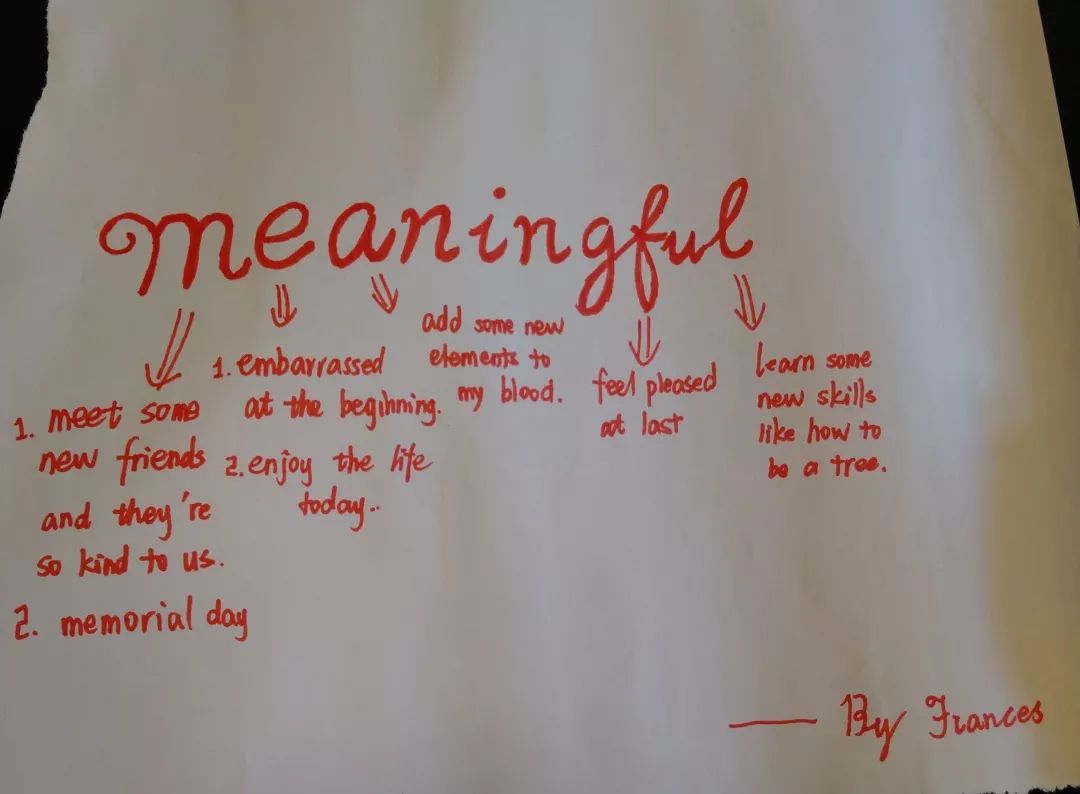 meaningful
1. meet some
new friends
and they're
so kind to us.
2. memorial day
1. embarrassed
at the beginning.
2. enjoy the life
today..
add some new
elements to
my blood.
feel pleased
at last
learn some
new skills
like how to
be a tree.
— By Frances